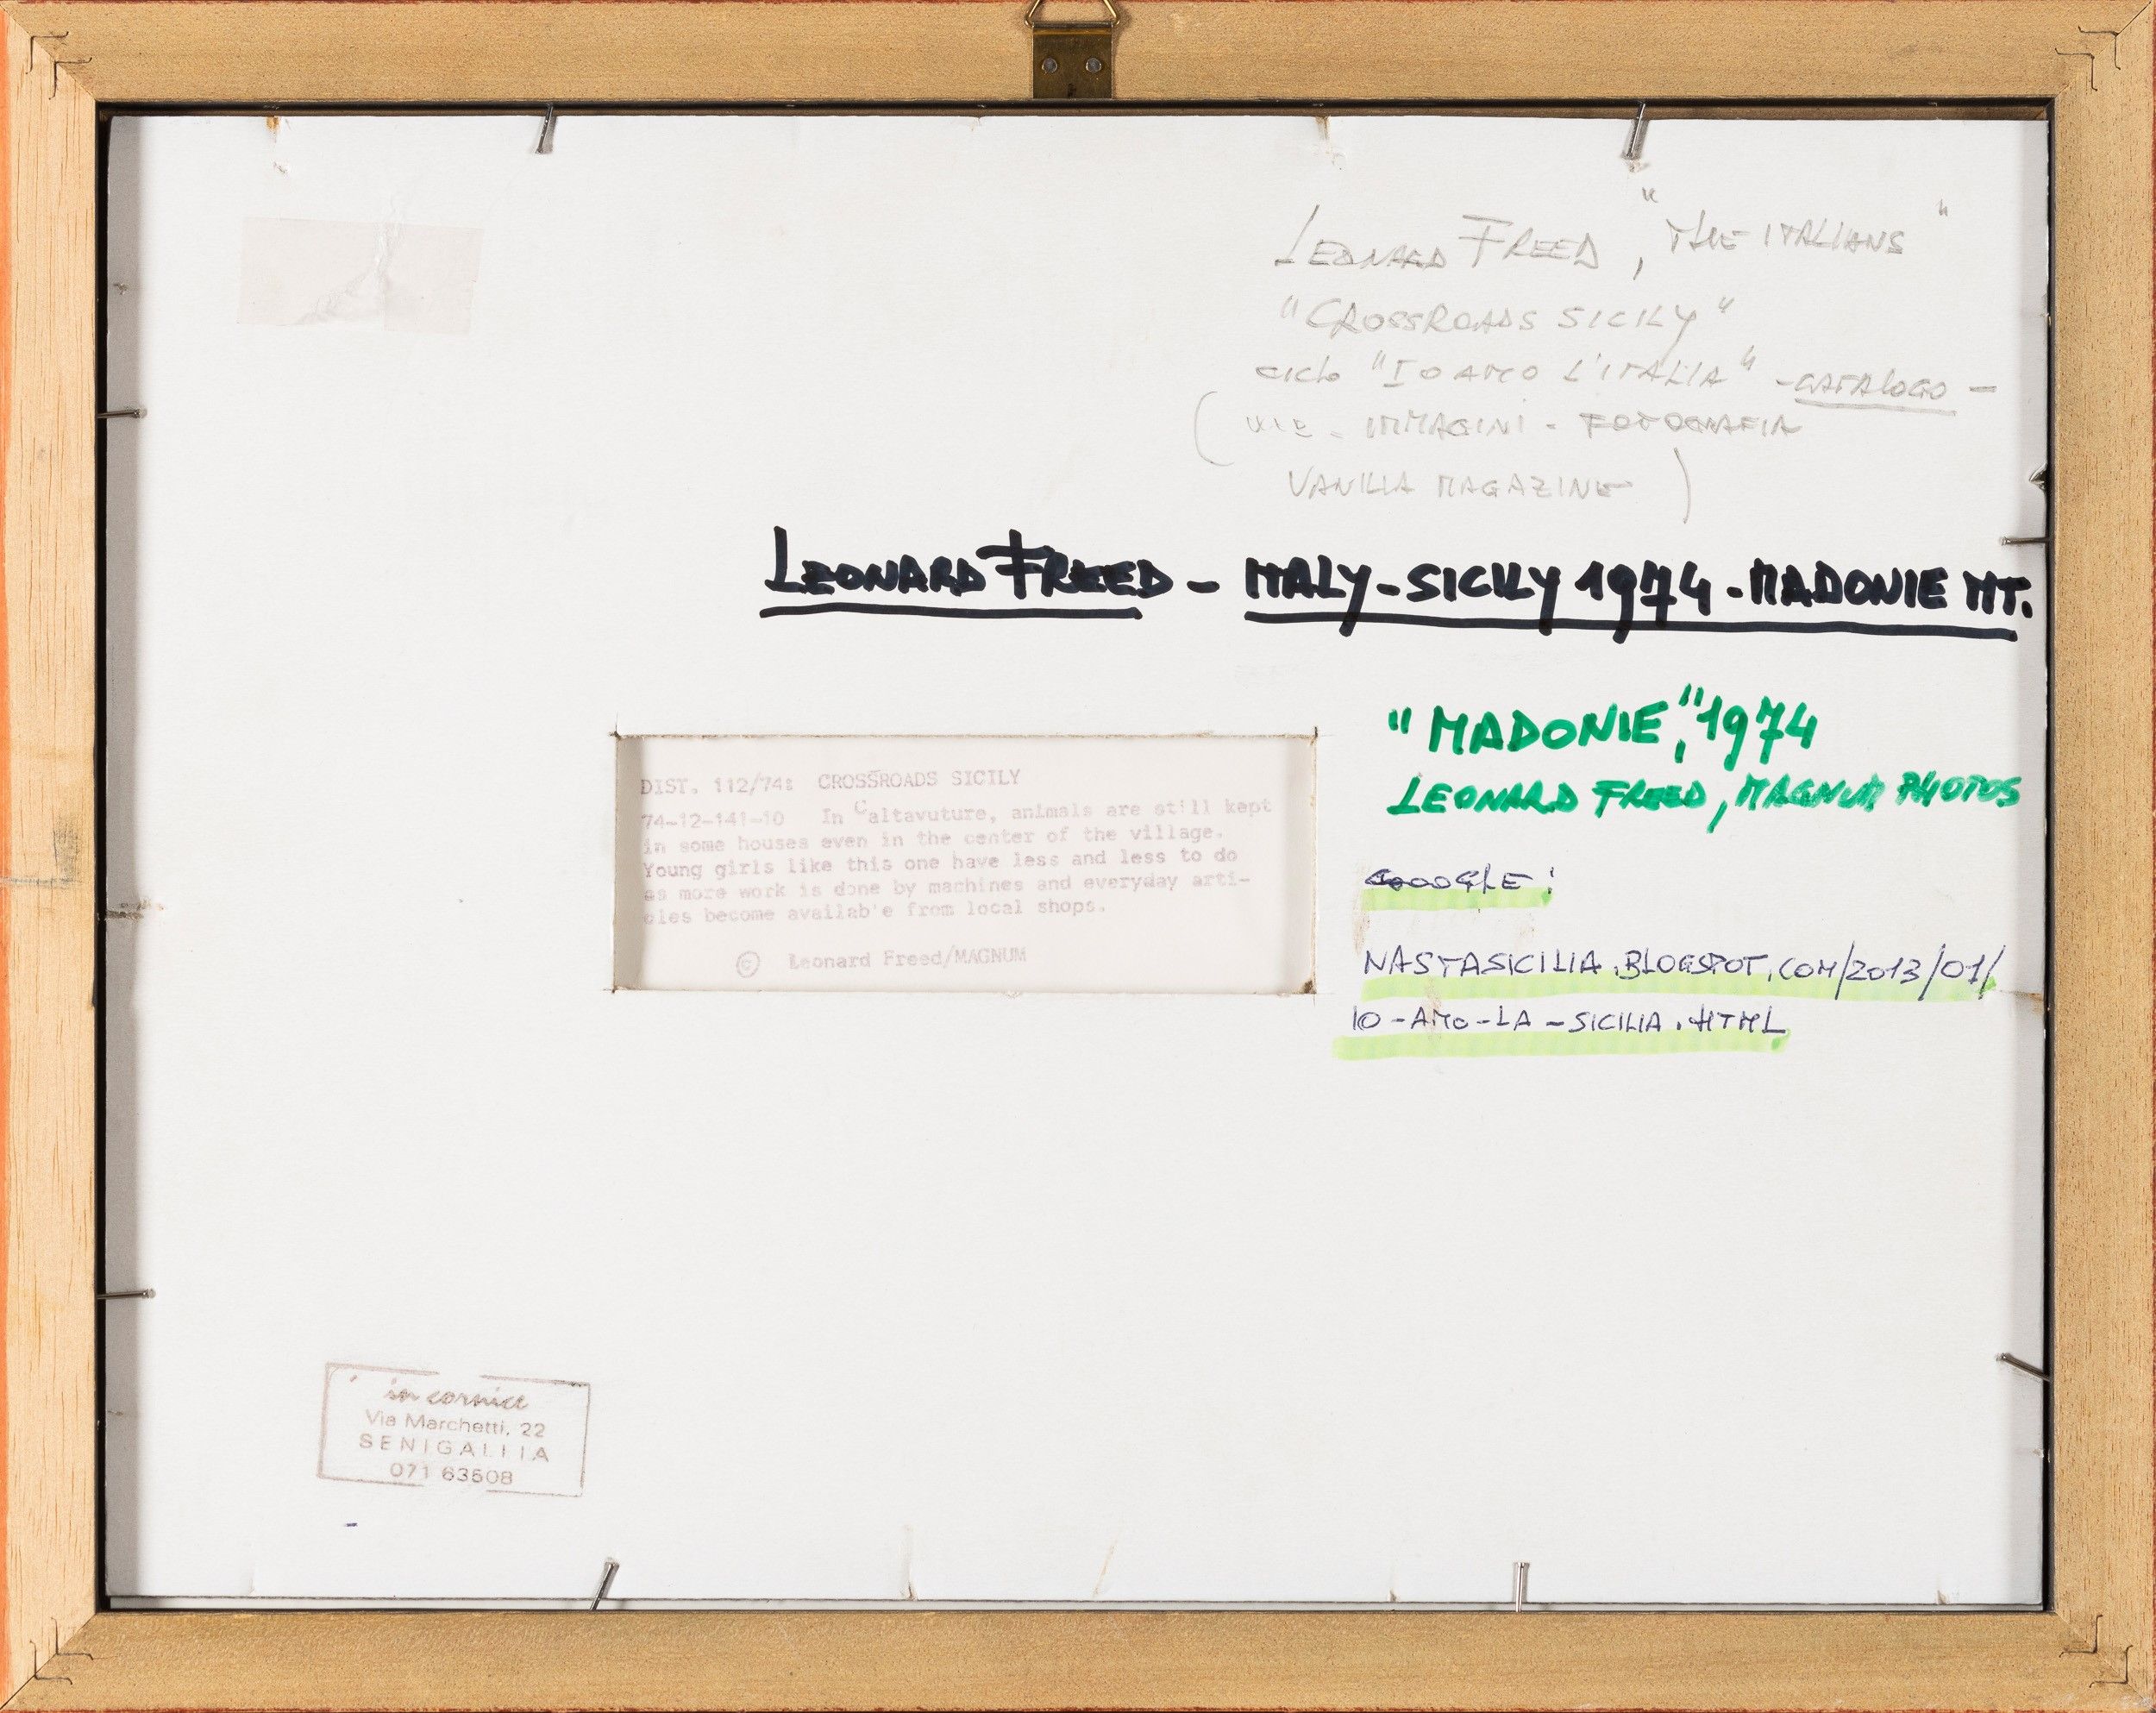 LEONARD FREED, "THE ITALIANS"
"CROSSROADS SICILY"
ciclo "IO AMO L'ITALIA" - CATALOGO -
IMMAGINI - FOTOGRAFIA
VANILLA MAGAZINE)
LEONARD FREED - ITALY - SICILY 1974 - MADONIE MT.
"MADONIE", 1974
LEONARD FREED, MAGNUM PHOTOS
DIST. 112/74: CROSSROADS SICILY
74-12-141-10 In Caltavuture, animals are still kept
in some houses even in the center of the village.
Young girls like this one have less and less to do
as more work is done by machines and everyday arti-
cles become availab'e from local shops.
© Leonard Freed/MAGNUM
GOOGLE:
NASTASICILIA.BLOGSPOT.COM/2013/01/
IO-AMO-LA-SICILIA.HTML
in cornice
Via Marchetti, 22
SENIGALLIA
071 63508